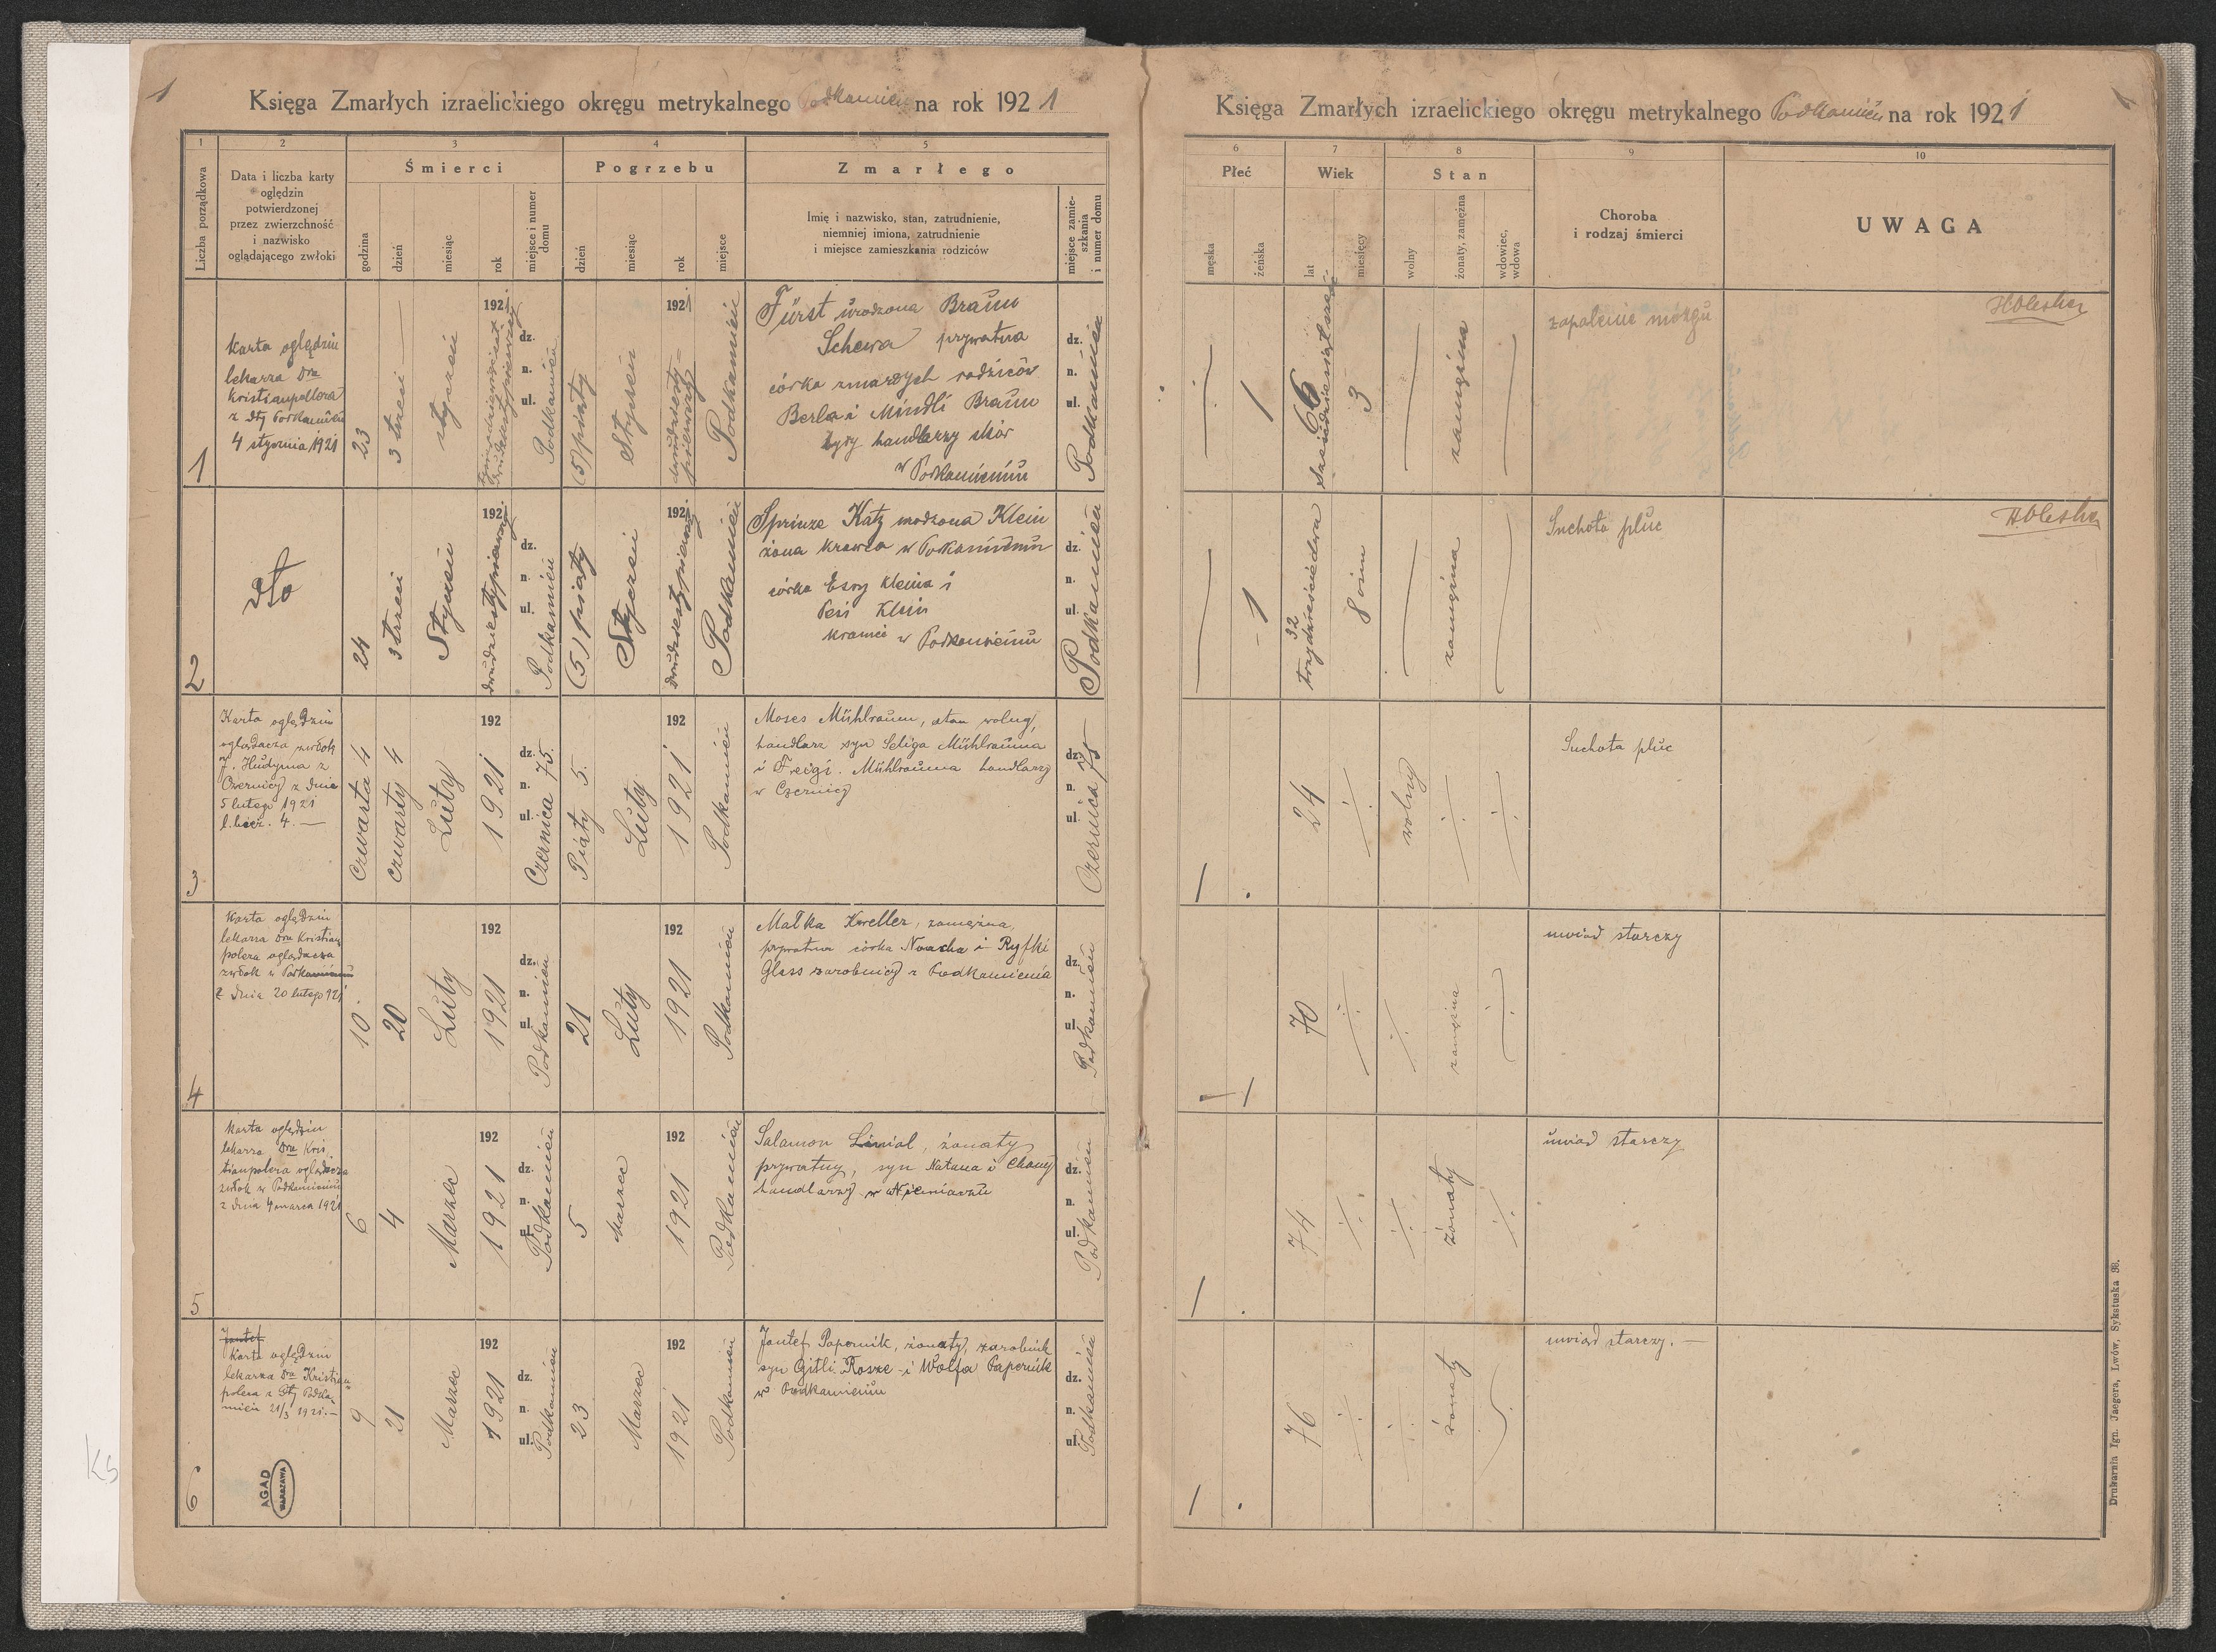 1
Księga Zmarłych izraelickiego okręgu metrykalnego Podkamień na rok 1921
1
2
3
4
5
Liczba porządkowa
Data i liczba karty
oględzin
potwierdzonej
przez zwierzchność
i nazwisko
oglądającego zwłoki
Śmierci
godzina
dzień
miesiąc
rok
miejsce i numer
domu
Pogrzebu
dzień
miesiąc
rok
miejsce
Zmarłego
Imię i nazwisko, stan, zatrudnienie,
niemniej imiona, zatrudnienie
i miejsce zamieszkania rodziców
miejsce zamie-
szkania
i numer domu
1
Karta oględzin
lekarza Dra
Kristianpollera
z dty Podkamień
4 stycznia 1921
23
3 trzeci
styczeń
1921
dz.
n.
ul.
Podkamień
(5) piąty
Styczeń
1921
dwudziesty
pierwszy
Podkamień
Fürst urodzona Braun
Schewa prywatna
córka zmarłych rodziców
Berla i Mindli Braun
handlarzy skór
w Podkamieniu
dz.
n.
ul.
Podkamień
2
dto
24
3 trzeci
Styczeń
1921
dwudziestypierwszy
dz.
n.
ul.
Podkamień
(5) piąty
Styczeń
1921
dwudziestypierwszy
Podkamień
Sprinze Katz urodzona Klein
żona krawca w Podkamieniu
córka Esry Kleina i
Pesi Klein
w Podkamieniu
dz.
n.
ul.
Podkamień
3
Karta oględzin
oglądacza zwłok
J. Hudyma z
Czernicy z dnia
5 lutego 1921
4.
czwarta 4
czwarty 4
Luty
192
1921
dz.
n.
ul.
Czernica 75.
Piąty 5.
Luty
192
1921
Podkamień
Moses Mühlraum, stan wolny,
handlarz syn Seliga Mühlrauma
i Freigi Mühlrauma handlarzy
w Czernicy
dz.
n.
ul.
Czernica 75
4
Karta oględzin
lekarza Dra Kristian
polera oglądacza
zwłok w Podkamieniu
z dnia 20 lutego 921
10.
20
Luty
192
1921
dz.
n.
ul.
Podkamień
21
Luty
192
1921
Podkamień
Małka Kweller, zamężna,
prywatna córka Noacha i Ryfki
Glass zarobnicy z Podkamienia
dz.
n.
ul.
Podkamień
5
Karta oględzin
lekarza Dra Kris
tianpolera oglądacza
zwłok w Podkamieniu
z dnia 4 marca 1921
6
4
Marzec
192
1921
dz.
n.
ul.
Podkamień
5
Marzec
192
1921
Podkamień
Salamon Linial, żonaty
prywatny, syn Natana i Chany
handlarzy w
dz.
n.
ul.
Podkamień
6
Jontef
Karta oględzin
lekarza Dra Kristian
polera z dty Podka
mień 21/3 1921.—
9
21
Marzec
192
1921
dz.
n.
ul.
Podkamień
23
Marzec
192
1921
Podkamień
Jontef Papernik, żonaty, zarobnik
syn Gitli Rosze i Wolfa Papernik
w Podkamieniu
dz.
n.
ul.
Podkamień
AGAD
WARSZAWA
Księga Zmarłych izraelickiego okręgu metrykalnego Podkamień na rok 1921
1
6
7
8
9
10
Płeć
męska
żeńska
Wiek
lat
miesięcy
Stan
wolny
żonaty, zamężna
wdowiec,
wdowa
Choroba
i rodzaj śmierci
UWAGA
1
66
sześćdziesiątsześć
3
zamężna
zapalenie mózgu
1
32
trzydzieścidwa
8 osim
zamężna
Suchota płuc
1
24
wolny
Suchota płuc
1
70
zamężna
uwiąd starczy
1
74
żonaty
uwiąd starczy
1
76
żonaty
uwiąd starczy. —
Drukarnia Ign. Jaegera, Lwów, Sykstuska 33.